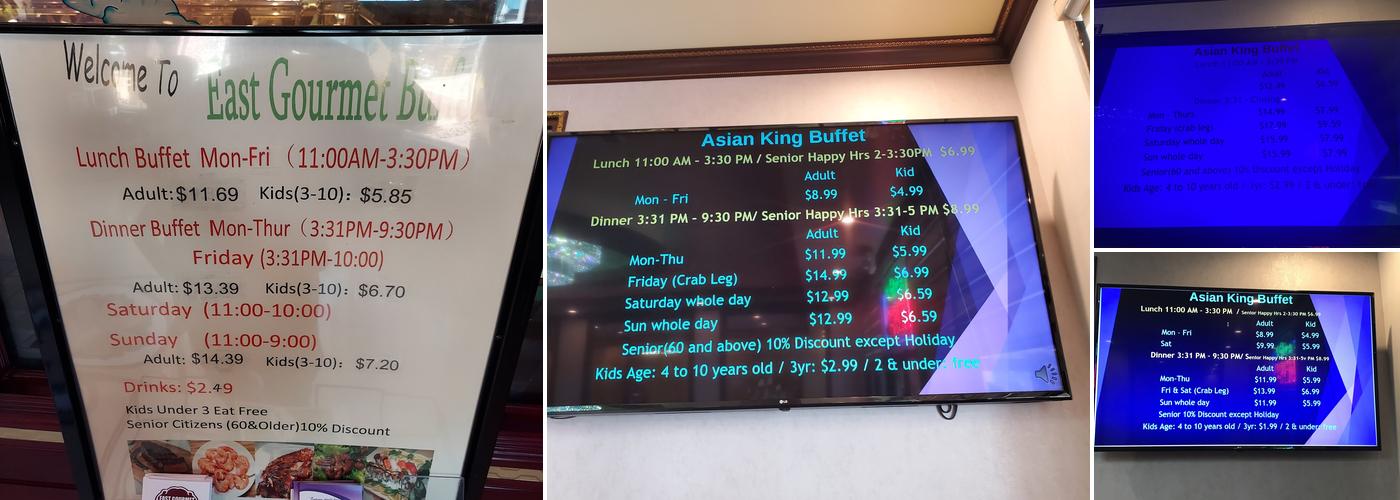 Welcome To
East Gourmet
Lunch Buffet Mon-Fri (11:00AM-3:30PM)
Adult:$11.69 Kids(3-10): $5.85
Dinner Buffet Mon-Thur (3:31PM-9:30PM)
Friday (3:31PM-10:00)
Adult: $13.39 Kids(3-10): $6.70
Saturday (11:00-10:00)
Sunday (11:00-9:00)
Adult: $14.39 Kids(3-10): $7.20
Drinks: $2.49
Kids Under 3 Eat Free
Senior Citizens (60&Older)10% Discount
EAST GOURMET
Asian King Buffet
Lunch 11:00 AM - 3:30 PM / Senior Happy Hrs 2-3:30PM $6.99
Adult Kid
Mon - Fri $8.99 $4.99
Dinner 3:31 PM - 9:30 PM/ Senior Happy Hrs 3:31-5 PM $8.99
Adult Kid
Mon-Thu $11.99 $5.99
Friday (Crab Leg) $14.99 $6.99
Saturday whole day $12.99 $6.59
Sun whole day $12.99 $6.59
Senior(60 and above) 10% Discount except Holiday
Kids Age: 4 to 10 years old / 3yr: $2.99 / 2 & under: free
LG
Asian King Buffet
Lunch 11:00 AM - 3:30 PM
Adult Kid
$12.99 $6.59
Dinner 3:31 - Closing
Mon - Thurs $14.99 $7.99
Friday (crab leg) $17.99 $9.59
Saturday whole day $15.99 $7.99
Sun whole day $15.99 $7.99
Senior(60 and above) 10% Discount except Holiday
Kids Age: 4 to 10 years old / 3yr: $2.99 / 2 & under:
Asian King Buffet
Lunch 11:00 AM - 3:30 PM / Senior Happy Hrs 2-3:30 PM $6.99
Adult Kid
Mon - Fri $8.99 $4.99
Sat $9.99 $5.99
Dinner 3:31 PM - 9:30 PM/ Senior Happy Hrs 3:31-5v PM $8.99
Adult Kid
Mon-Thu $11.99 $5.99
Fri & Sat (Crab Leg) $13.99 $6.99
Sun whole day $11.99 $5.99
Senior 10% Discount except Holiday
Kids Age: 4 to 10 years old / 3yr: $1.99 / 2 & under: free